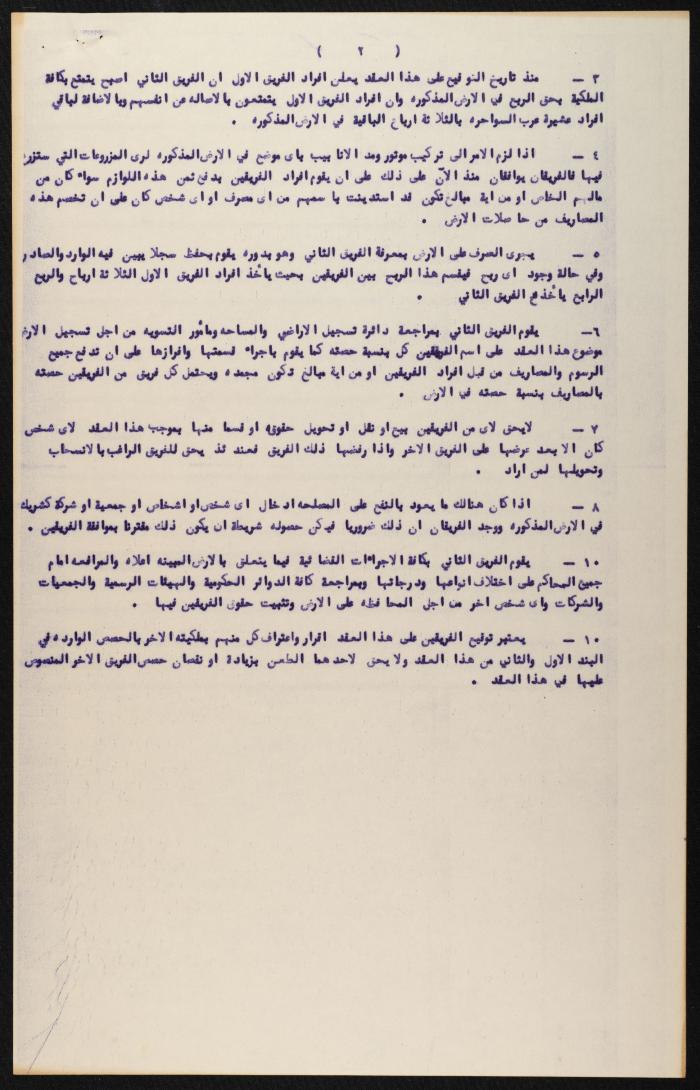 ( ٢ )
٣ — منذ تاريخ التوقيع على هذا العقد يعلن افراد الفريق الاول ان الفريق الثاني اصبح يتمتع بكافة
الملكية بحق الربع في الارض المذكوره وان افراد الفريق الاول يتمتعون بالاصاله عن انفسهم وبالاضافة لباقي
افراد عشيرة عرب السواحره بالثلاثة ارباع الباقية في الارض المذكوره .
٤ — اذا لزم الامر الى تركيب موتور ومد الانابيب باى موضع في الارض المذكوره لرى المزروعات التي ستزرع
فيها فالفريقان يوافقان منذ الآن على ذلك على ان يقوم افراد الفريقين بدفع ثمن هذه اللوازم سواء كان من
مالهم الخاص او من اية مبالغ تكون قد استدينت باسمهم من اى مصرف او اى شخص كان على ان تخصم هذه
المصاريف من حاصلات الارض .
٥ — يجرى الصرف على الارض بمعرفة الفريق الثاني وهو بدوره يقوم بحفظ سجلا يبين فيه الوارد والصادر
وفي حالة وجود اى ربح فيقسم هذا الربح بين الفريقين بحيث يأخذ افراد الفريق الاول الثلاثة ارباح والربع
الرابع يأخذه الفريق الثاني .
٦— يقوم الفريق الثاني بمراجعة دائرة تسجيل الاراضي والمساحه ومأمور التسويه من اجل تسجيل الارض
موضوع هذا العقد على اسم الفريقين كل بنسبة حصته كما يقوم باجراء قسمتها وافرازها على ان تدفع جميع
الرسوم والمصاريف من قبل افراد الفريقين او من اية مبالغ تكون مجمده ويحتمل كل فريق من الفريقين حصته
بالمصاريف بنسبة حصته في الارض .
٧ — لايحق لاى من الفريقين بيع او نقل او تحويل حقوقه او قسما منها بموجب هذا العقد لاى شخص
كان الا بعد عرضها على الفريق الاخر واذا رفضها ذلك الفريق فعند ئذ يحق للفريق الراغب بالانسحاب
وتحويلها لمن اراد .
٨ — اذا كان هنالك ما يعود بالنفع على المصلحه ادخال اى شخص او اشخاص او جمعية او شركة كشريك
في الارض المذكوره ووجد الفريقان ان ذلك ضروريا فيمكن حصوله شريطة ان يكون ذلك مقترنا بموافقة الفريقين .
١٠ — يقوم الفريق الثاني بكافة الاجراءات القضائية فيما يتعلق بالارض المبينه اعلاه والمرافعه امام
جميع المحاكم على اختلاف انواعها ودرجاتها وبمراجعة كافة الدوائر الحكومية والهيئات الرسمية والجمعيات
والشركات واى شخص اخر من اجل المحافظه على الارض وتثبيت حقوق الفريقين فيها .
١٠ — يعتبر توقيع الفريقين على هذا العقد اقرار واعتراف كل منهم بملكيته الاخر بالحصص الوارده في
البند الاول والثاني من هذا العقد ولا يحق لاحدهما الطعن بزيادة او نقصان حصص الفريق الاخر المنصوص
عليها في هذا العقد .